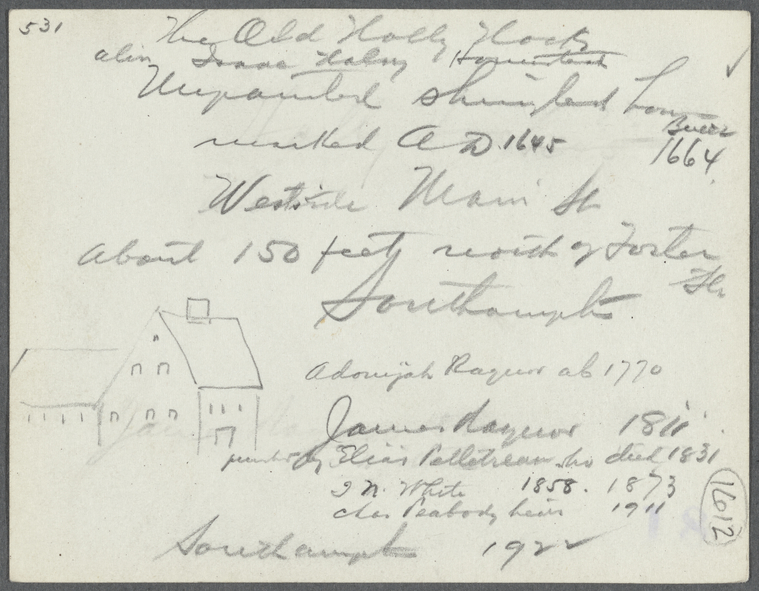 531
The Old Holly Hocks
Isaac Halsey Homestead
Unpainted shingled
marked AD 1645
Built
1664
West side Main St
about 150 feet north of Foster
St
Southampton
Adonijah Raynor ab 1770
James Raynor 1811
by Elias Pelletreau who died 1831
J N. White 1858. 1873
Chas Peabody heirs 1911
1612
Southampton 1922